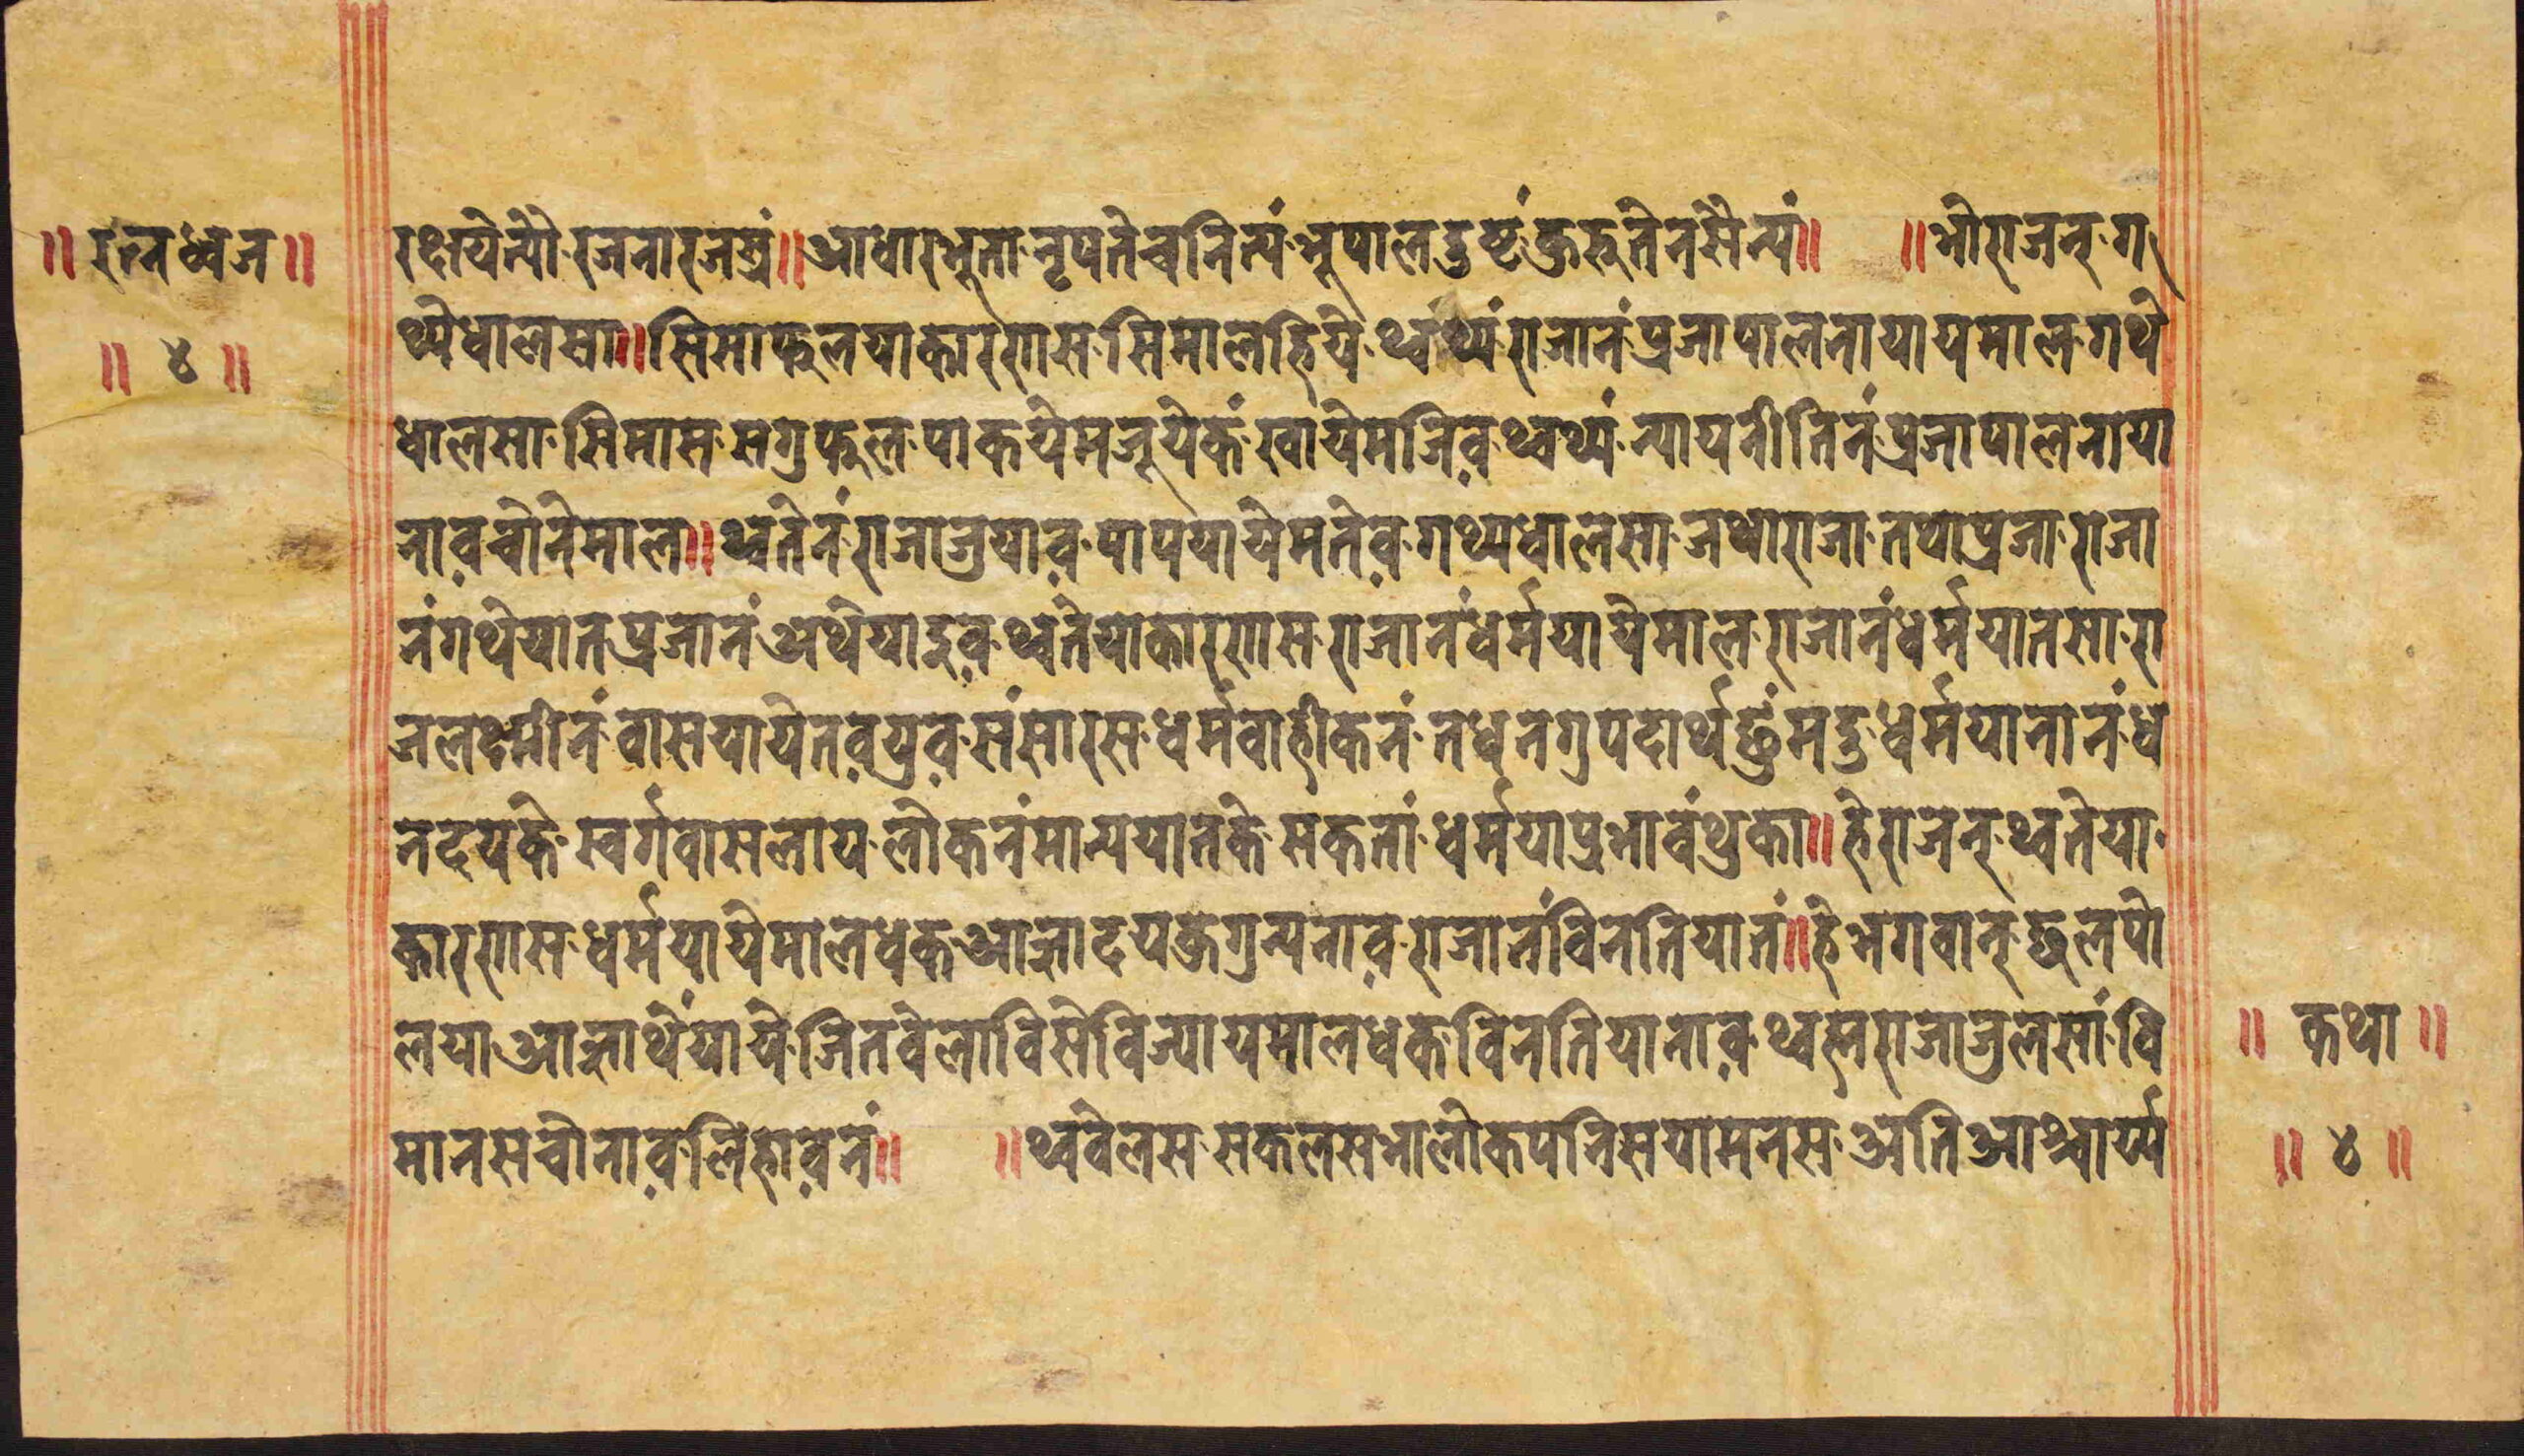 ॥ रत्नध्वज ॥
॥ ४ ॥
रक्षायेन्यो रजनारजस्रं॥ आधारभूता नृपतेचनित्यं भूपालदुष्टं कुरुतेनसैन्यं॥ ॥ भोराजन् ग
थ्येधालसा॥ सिमाफुलयाकारणस सिमालहिये थ्वथ्यं राजानं प्रजापालनायायमाल गथे
धालसा सिमास सगुफुल पाकयेमजूयेकं खायेमजिव़ थ्वथ्यं न्यायनीतिनं प्रजापालनाया
नाव़चोनेमाल॥ थ्वतेनं राजाजुयाव़ पापयायेमतेव़ गथ्यधालसा जथाराजा तथाप्रजा राजा
नंगथेयात प्रजानं अथेयाइव़ थ्वतेयाकारणस राजानंधर्मयायेमाल राजानंधर्मयातसा रा
जलक्ष्मीनं वासयायेतव़युव़ संसारस धर्मवाहीकनं तधनगुपदार्थछुंमदु धर्मयानानं ध
नदयके स्वर्गवासलाय लोकनंमान्ययातके सकतां धर्मयाप्रभावंथुका॥ हेराजन् थ्वतेया
कारणस धर्मयायेमालधकं आज्ञादयकुगुन्यनाव़ राजानंविनतियातं॥ हेभगवान् छलपो
लया आज्ञाथेंयाये जितवेलाविसेविज्यायमालधकं विनतियानाव़ थ्वह्मराजाजुलसां वि
मानसचोनाव़लिहाव़नं॥ ॥ थ्ववेलस सकलसभालोकपनिसयामनस अतिआश्चार्य्य
॥ कथा ॥
॥ ४ ॥